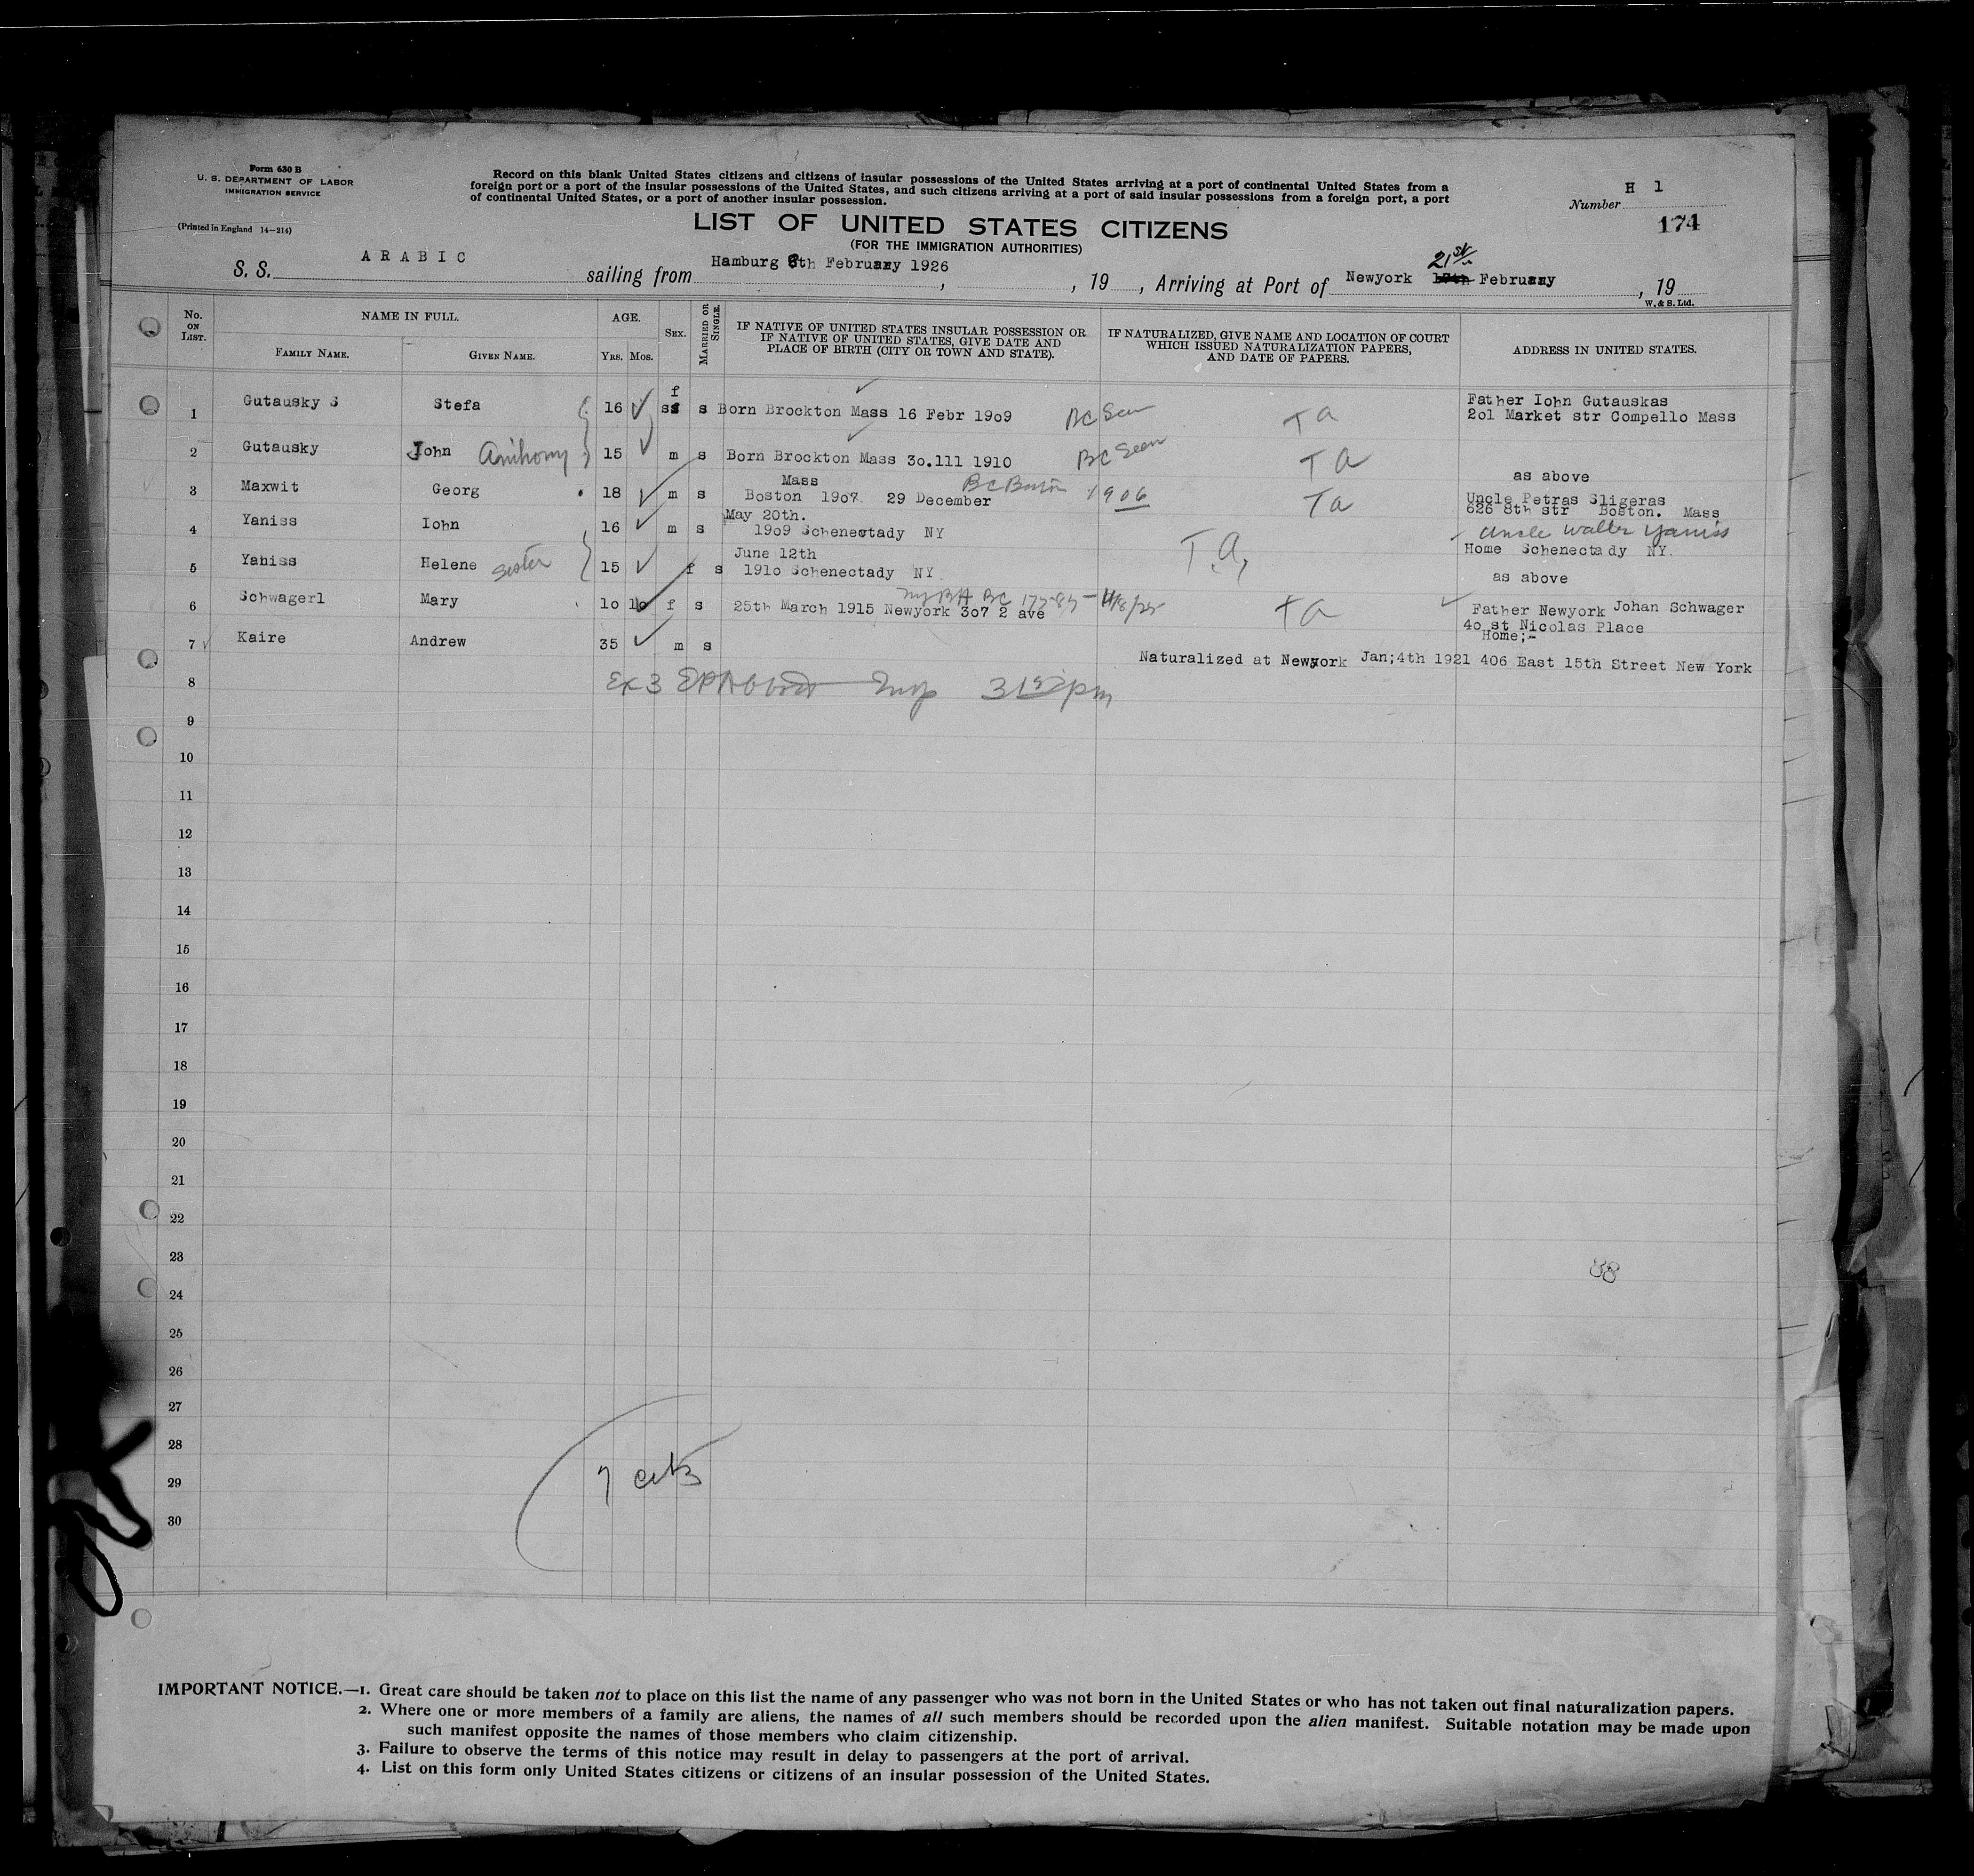 Form 630 B
U. S. DEPARTMENT OF LABOR
IMMIGRATION SERVICE
(Printed in England 14—214)
Record on this blank United States citizens and citizens of insular possessions of the United States arriving at a port of continental United States from a
foreign port or a port of the insular possessions of the United States, and such citizens arriving at a port of said insular possessions from a foreign port, a port
of continental United States, or a port of another insular possession.
H 1
Number
174
LIST OF UNITED STATES CITIZENS
(FOR THE IMMIGRATION AUTHORITIES)
S. S. ARABIC sailing from Hamburg 8th February 1926, , 19 , Arriving at Port of Newyork 21st February , 19
W. & S. Ltd.
No. ON LIST.
NAME IN FULL.
FAMILY NAME.
GIVEN NAME.
AGE.
YRS. MOS.
SEX.
MARRIED OR SINGLE.
IF NATIVE OF UNITED STATES INSULAR POSSESSION OR
IF NATIVE OF UNITED STATES, GIVE DATE AND
PLACE OF BIRTH (CITY OR TOWN AND STATE).
IF NATURALIZED, GIVE NAME AND LOCATION OF COURT
WHICH ISSUED NATURALIZATION PAPERS,
AND DATE OF PAPERS.
ADDRESS IN UNITED STATES.
1 Gutausky S Stefa 16 f s Born Brockton Mass 16 Febr 19o9 BC Seen T a Father Iohn Gutauskas
2o1 Market str Compello Mass
2 Gutausky John Anthony 15 m s Born Brockton Mass 3o.111 1910 BC Seen T a as above
3 Maxwit Georg 18 m s Mass
Boston 19o7. 29 December BC Boston 1906 Ta Uncle Petras Sligeras
626 8th str Boston. Mass
4 Yaniss Iohn 16 m s May 20th.
19o9 Schenectady NY Uncle Walter Yaniss
Home Schenectady NY.
5 Yaniss Helene sister 15 f s June 12th
191o Schenectady NY T.a, as above
6 Schwagerl Mary 1o 1o f s 25th March 1915 Newyork 3o7 2 ave BC Ta Father Newyork Johan Schwager
4o st Nicolas Place
7 Kaire Andrew 35 m s Home;-
Naturalized at Newyork Jan;4th 1921 406 East 15th Street New York
8 Ex 3 Insp pm
9
10
11
12
13
14
15
16
17
18
19
20
21
22
23
24
25
26
27
28
29
30
88
7 cits
OK
IMPORTANT NOTICE.—1. Great care should be taken not to place on this list the name of any passenger who was not born in the United States or who has not taken out final naturalization papers.
2. Where one or more members of a family are aliens, the names of all such members should be recorded upon the alien manifest. Suitable notation may be made upon
such manifest opposite the names of those members who claim citizenship.
3. Failure to observe the terms of this notice may result in delay to passengers at the port of arrival.
4. List on this form only United States citizens or citizens of an insular possession of the United States.